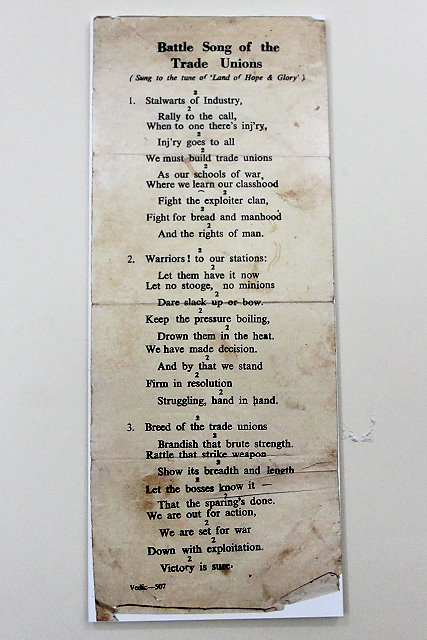 Battle Song of the
Trade Unions
( Sung to the tune of 'Land of Hope & Glory' )
2
1. Stalwarts of Industry,
2
Rally to the call,
When to one there's inj'ry,
2
Inj'ry goes to all
2
We must build trade unions
2
As our schools of war,
Where we learn our classhood
2
Fight the exploiter clan,
2
Fight for bread and manhood
2
And the rights of man.
2
2. Warriors! to our stations:
2
Let them have it now
Let no stooge, no minions
2
Dare slack up or bow.
2
Keep the pressure boiling,
2
Drown them in the heat.
We have made decision.
2
And by that we stand
2
Firm in resolution
2
Struggling, hand in hand.
2
3. Breed of the trade unions
2
Brandish that brute strength.
Rattle that strike weapon
2
Show its breadth and length
2
Let the bosses know it —
2
That the sparing's done.
We are out for action,
2
We are set for war
2
Down with exploitation.
2
Victory is sure.
Vedic—507